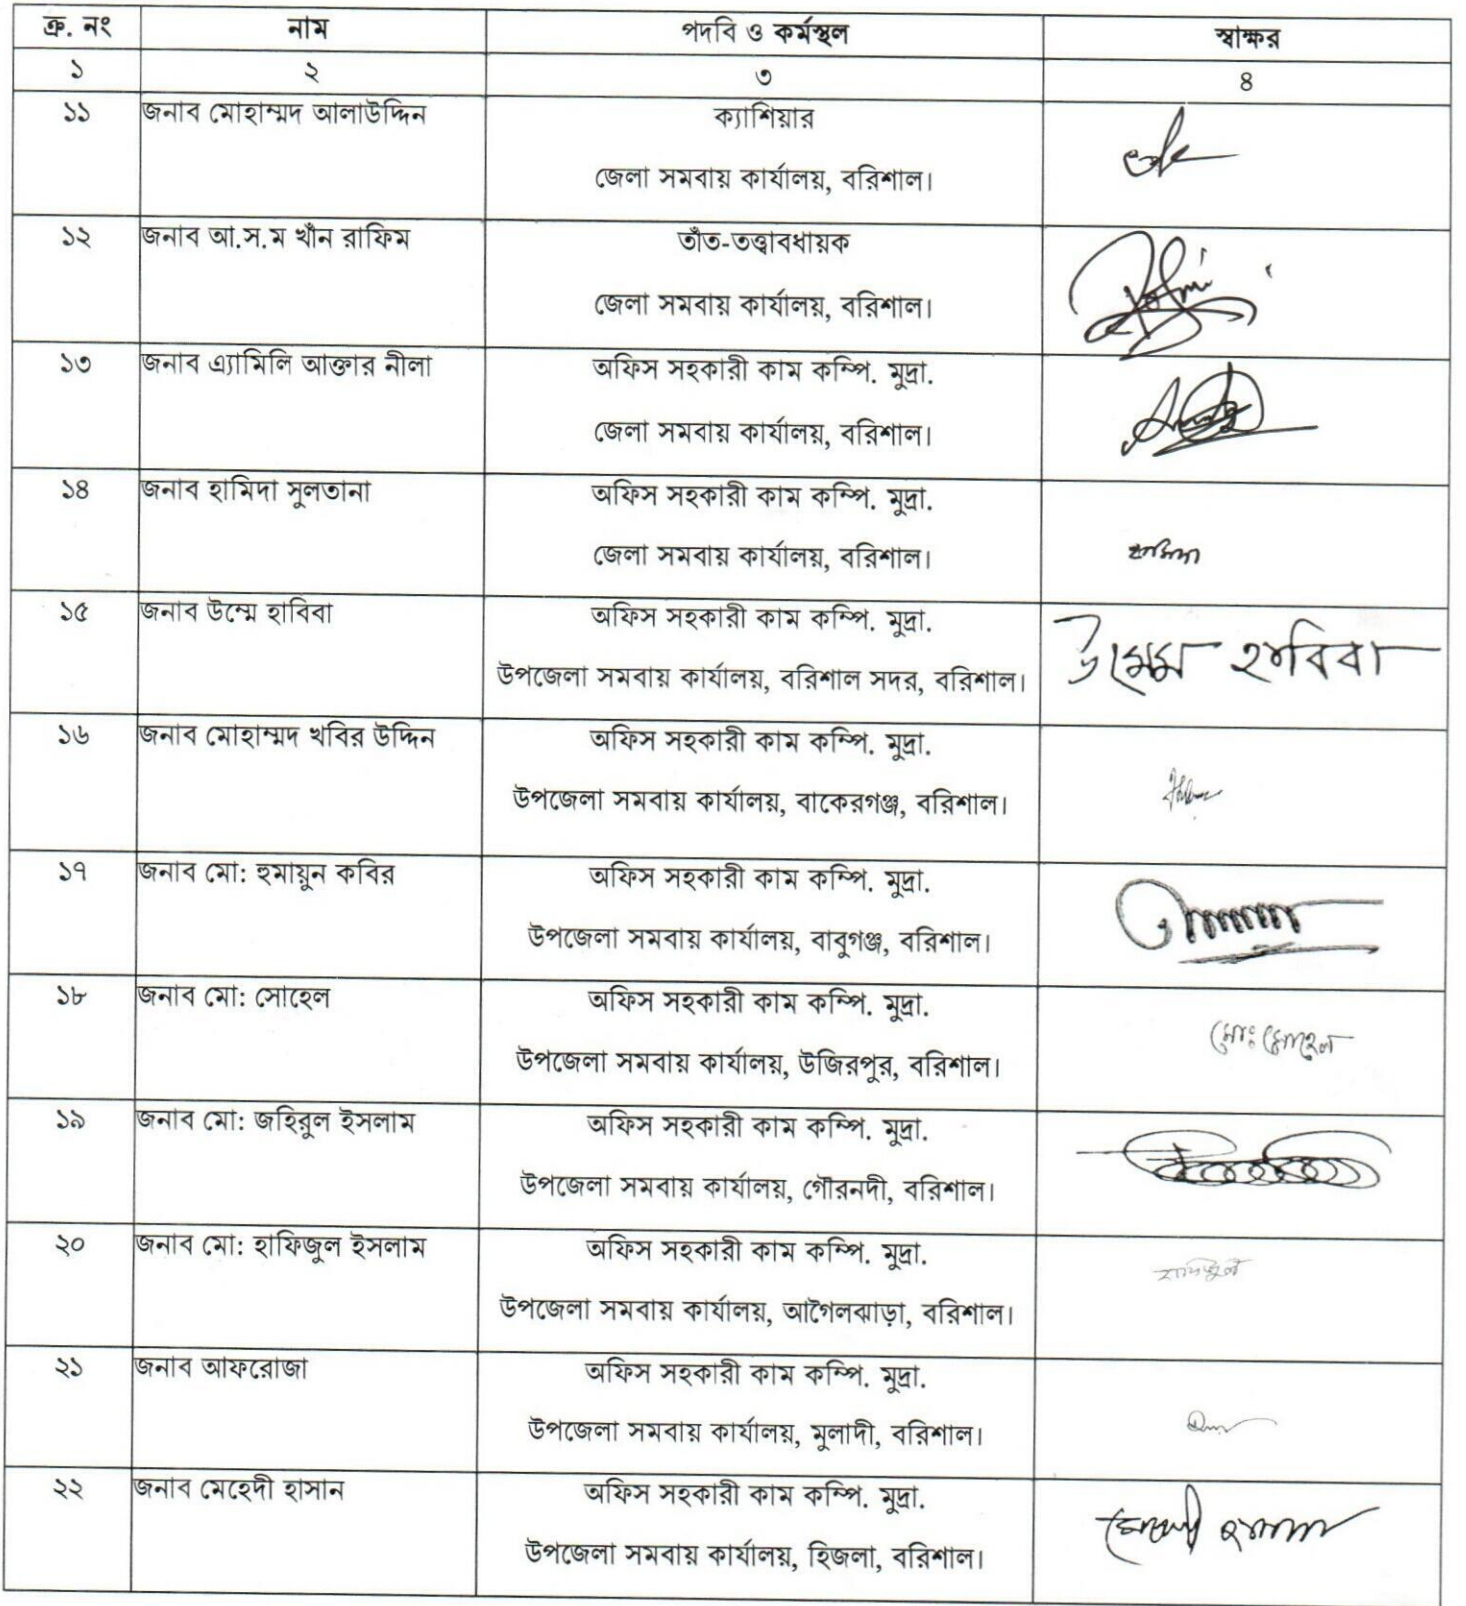 ক্র. নং নাম পদবি ও কর্মস্থল স্বাক্ষর
১ ২ ৩ ৪
১১ জনাব মোহাম্মদ আলাউদ্দিন ক্যাশিয়ার
জেলা সমবায় কার্যালয়, বরিশাল।
১২ জনাব আ.স.ম খাঁন রাফিম তাঁত-তত্ত্বাবধায়ক
জেলা সমবায় কার্যালয়, বরিশাল।
১৩ জনাব এ্যামিলি আক্তার নীলা অফিস সহকারী কাম কম্পি. মুদ্রা.
জেলা সমবায় কার্যালয়, বরিশাল।
১৪ জনাব হামিদা সুলতানা অফিস সহকারী কাম কম্পি. মুদ্রা.
জেলা সমবায় কার্যালয়, বরিশাল। হামিদা
১৫ জনাব উম্মে হাবিবা অফিস সহকারী কাম কম্পি. মুদ্রা.
উপজেলা সমবায় কার্যালয়, বরিশাল সদর, বরিশাল। উম্মে হাবিবা
১৬ জনাব মোহাম্মদ খবির উদ্দিন অফিস সহকারী কাম কম্পি. মুদ্রা.
উপজেলা সমবায় কার্যালয়, বাকেরগঞ্জ, বরিশাল।
১৭ জনাব মো: হুমায়ুন কবির অফিস সহকারী কাম কম্পি. মুদ্রা.
উপজেলা সমবায় কার্যালয়, বাবুগঞ্জ, বরিশাল।
১৮ জনাব মো: সোহেল অফিস সহকারী কাম কম্পি. মুদ্রা.
উপজেলা সমবায় কার্যালয়, উজিরপুর, বরিশাল। মোঃ সোহেল
১৯ জনাব মো: জহিরুল ইসলাম অফিস সহকারী কাম কম্পি. মুদ্রা.
উপজেলা সমবায় কার্যালয়, গৌরনদী, বরিশাল।
২০ জনাব মো: হাফিজুল ইসলাম অফিস সহকারী কাম কম্পি. মুদ্রা.
উপজেলা সমবায় কার্যালয়, আগৈলঝাড়া, বরিশাল। হাফিজুল
২১ জনাব আফরোজা অফিস সহকারী কাম কম্পি. মুদ্রা.
উপজেলা সমবায় কার্যালয়, মুলাদী, বরিশাল।
২২ জনাব মেহেদী হাসান অফিস সহকারী কাম কম্পি. মুদ্রা.
উপজেলা সমবায় কার্যালয়, হিজলা, বরিশাল। মেহেদী হাসান